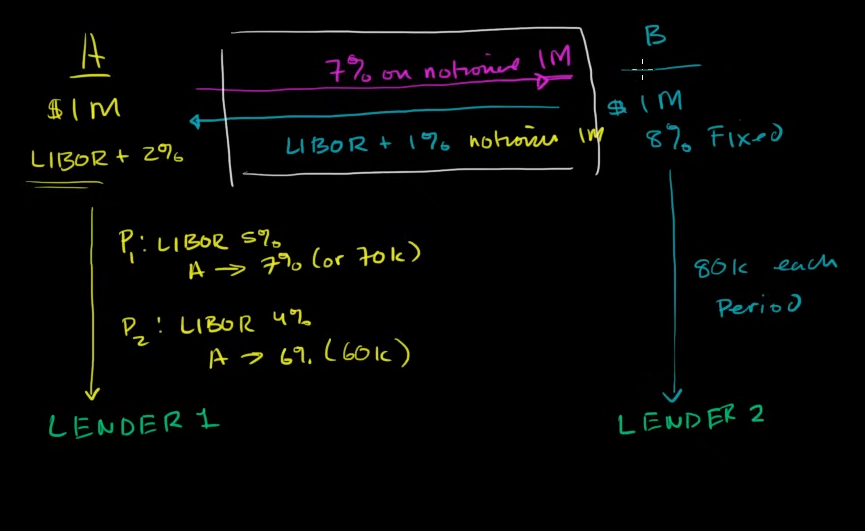 A
$1M
LIBOR + 2%
7% on notional 1M
LIBOR + 1% notional 1M
B
$1M
8% Fixed
P1: LIBOR 5%
A → 7% (or 70k)
P2: LIBOR 4%
A → 6% (60k)
80k each
Period
LENDER 1
LENDER 2